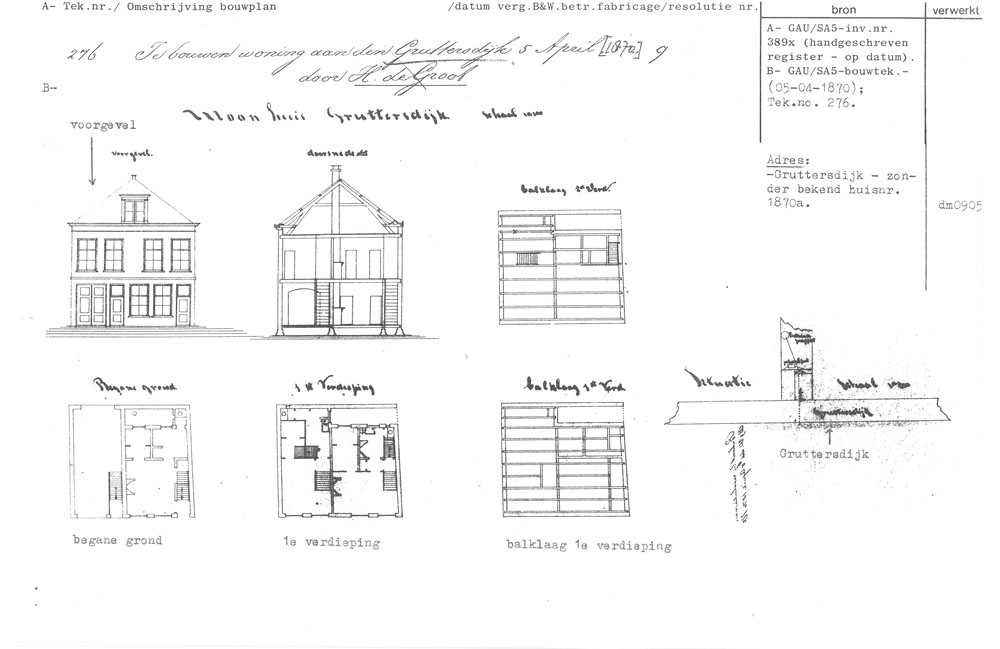 A- Tek.nr./ Omschrijving bouwplan /datum verg.B&W.betr.fabricage/resolutie nr.
bron
verwerkt
276 Te bouwen woning aan den Gruttersdijk 5 April [1870.] 9
door H. de Groot
B-
A- GAU/SA5-inv.nr.
389x (handgeschreven
register - op datum).
B- GAU/SA5-bouwtek.-
(05-04-1870);
Tek.no. 276.
Adres:
-Gruttersdijk - zon-
der bekend huisnr.
1870a.
dm0905
Woon huis Gruttersdijk schaal
voorgevel
voorgevel.
doorsnede
balklaag 2e Verd
Begane grond
1 ste Verdieping
balklaag 1ste Verd
Situatie
Schaal
Gruttersdijk
Gruttersdijk
begane grond
1e verdieping
balklaag 1e verdieping